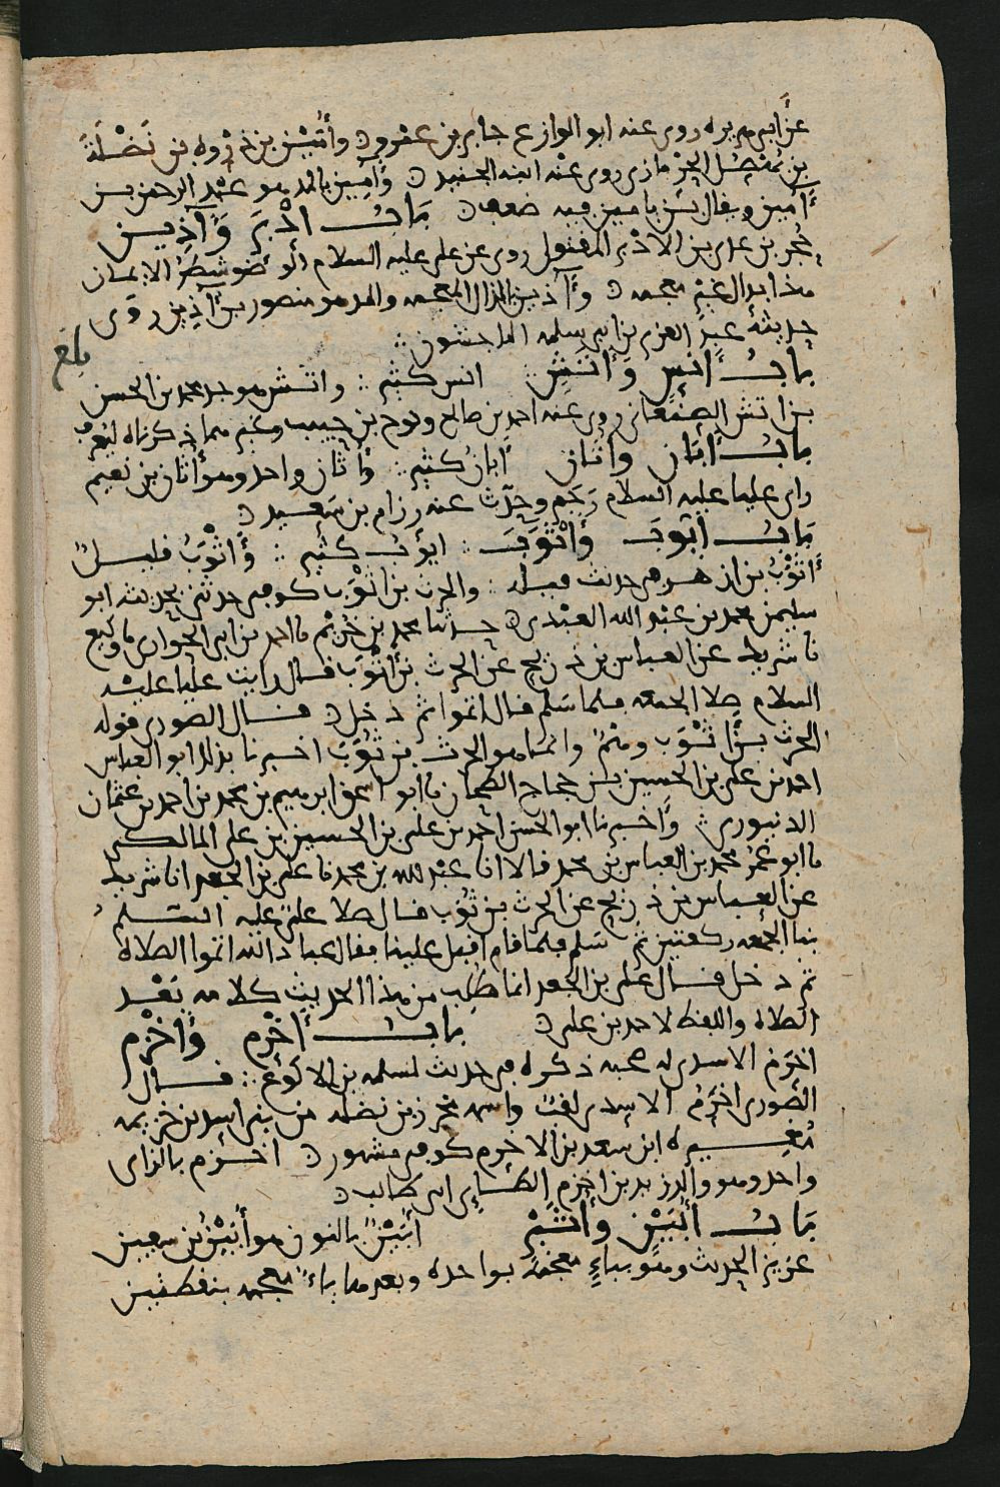 عن ابي هريره روى عنه ابو الوازع جابر بن عمرو وأُتَيْن بن ذِرْوه بن نَضْلَة
بن الحِرْمازي روى عنه ابنه الجنيد وآمين بالمد هو عبد الرحمن بن
آمين ويقال بن يامين فيه ضعف باب ادْبَر وَآذِين
حُجر بن عدي بن الادْبر المقتول روى عن علي عليه السلام الوضو شطر الايمان
هذا بدال غير معجمه وآذين بالذال المعجمه والمد هو منصور بن آذين روى
حديثه عبد العزيز بن ابي سلمه الماجشون
بلغ
باب أنس وَأتش انس كثير واتش هو جد محمد بن الحسن
بن اتش الصنعاني روى عنه احمد بن صالح ونوح بن حبيب وغيرهما ذكرناه ليعرف
باب أبَان وأثان أبان كثير وأثان واحد وهو أثان بن نعيم
راى عليا عليه السلام رجم وحدّث عنه رزام بن سَعيد
باب أيّوب وأثْوَب ايوب كثير وَأثْوَب قليل
أثْوَب بن ازهر حديث قيله والحرث بن اثْوَب كوفي حدثني بحديثه ابو
سليمن محمد بن عبد الله العبدي حدثنا محمد بن خريم نا احمد بن ابي الحواري نا وكيع
نا شريك عن العباس بن ذريح عن الحرث بن أثوب قال رايت عليا عليه
السلام صلا الجمعه فلما سَلم قال اتموا ثم دخل قال الصوري قوله
الحرث بن أثْوَب وهم وانما هو الحرث بن ثُوَب اخبرنا بذلك ابو العباس
احمد بن علي بن الحسين بن حجاج الطحان نا ابو اسحق ابرهيم بن محمد بن احمد بن عثمان
الدنيوري وَأخبرنا ابو الحسن احمد بن علي بن الحسين بن علي المالكي
نا ابو عُمَر محمد بن العباس بن محمد قالا انا عبد الله بن محمد نا علي بن الجعد انا شريك
عن العباس بن ذريح عن الحرث بن ثُوَب قال صلا علي عليه السلم
بنا الجمعه ركعتين ثم سَلم فلما قام اقبل علينا فقال عباد الله اتموا الصلاة
ثم دخل قال علي بن الجعد انما طُلِب من هذا الحديث كلامه بَعْد
الصلاه واللفظ لاحمد بن علي باب أخْرم وَأخْزم
اخرَم الاسدي له صحبه ذكره في حديث لسلمه بن الاكوع قال
الصوري اخرم الاسدي لقب واسمه محرز بن نضله من بني اسد بن خزيمه
مُغيره ابن سعد بن الاخرم كوفي مشهور اخزم بالزاى
واحد وهو والد زيد بن اخزم الطاي ابي طالب
باب أبَيْن وأثير أبَيْن بالنون هو أبَيْن بن سفين
عزيز الحديث وهو بباءٍ معجمه بواحده وبعدها ياء معجمه بنقطتين